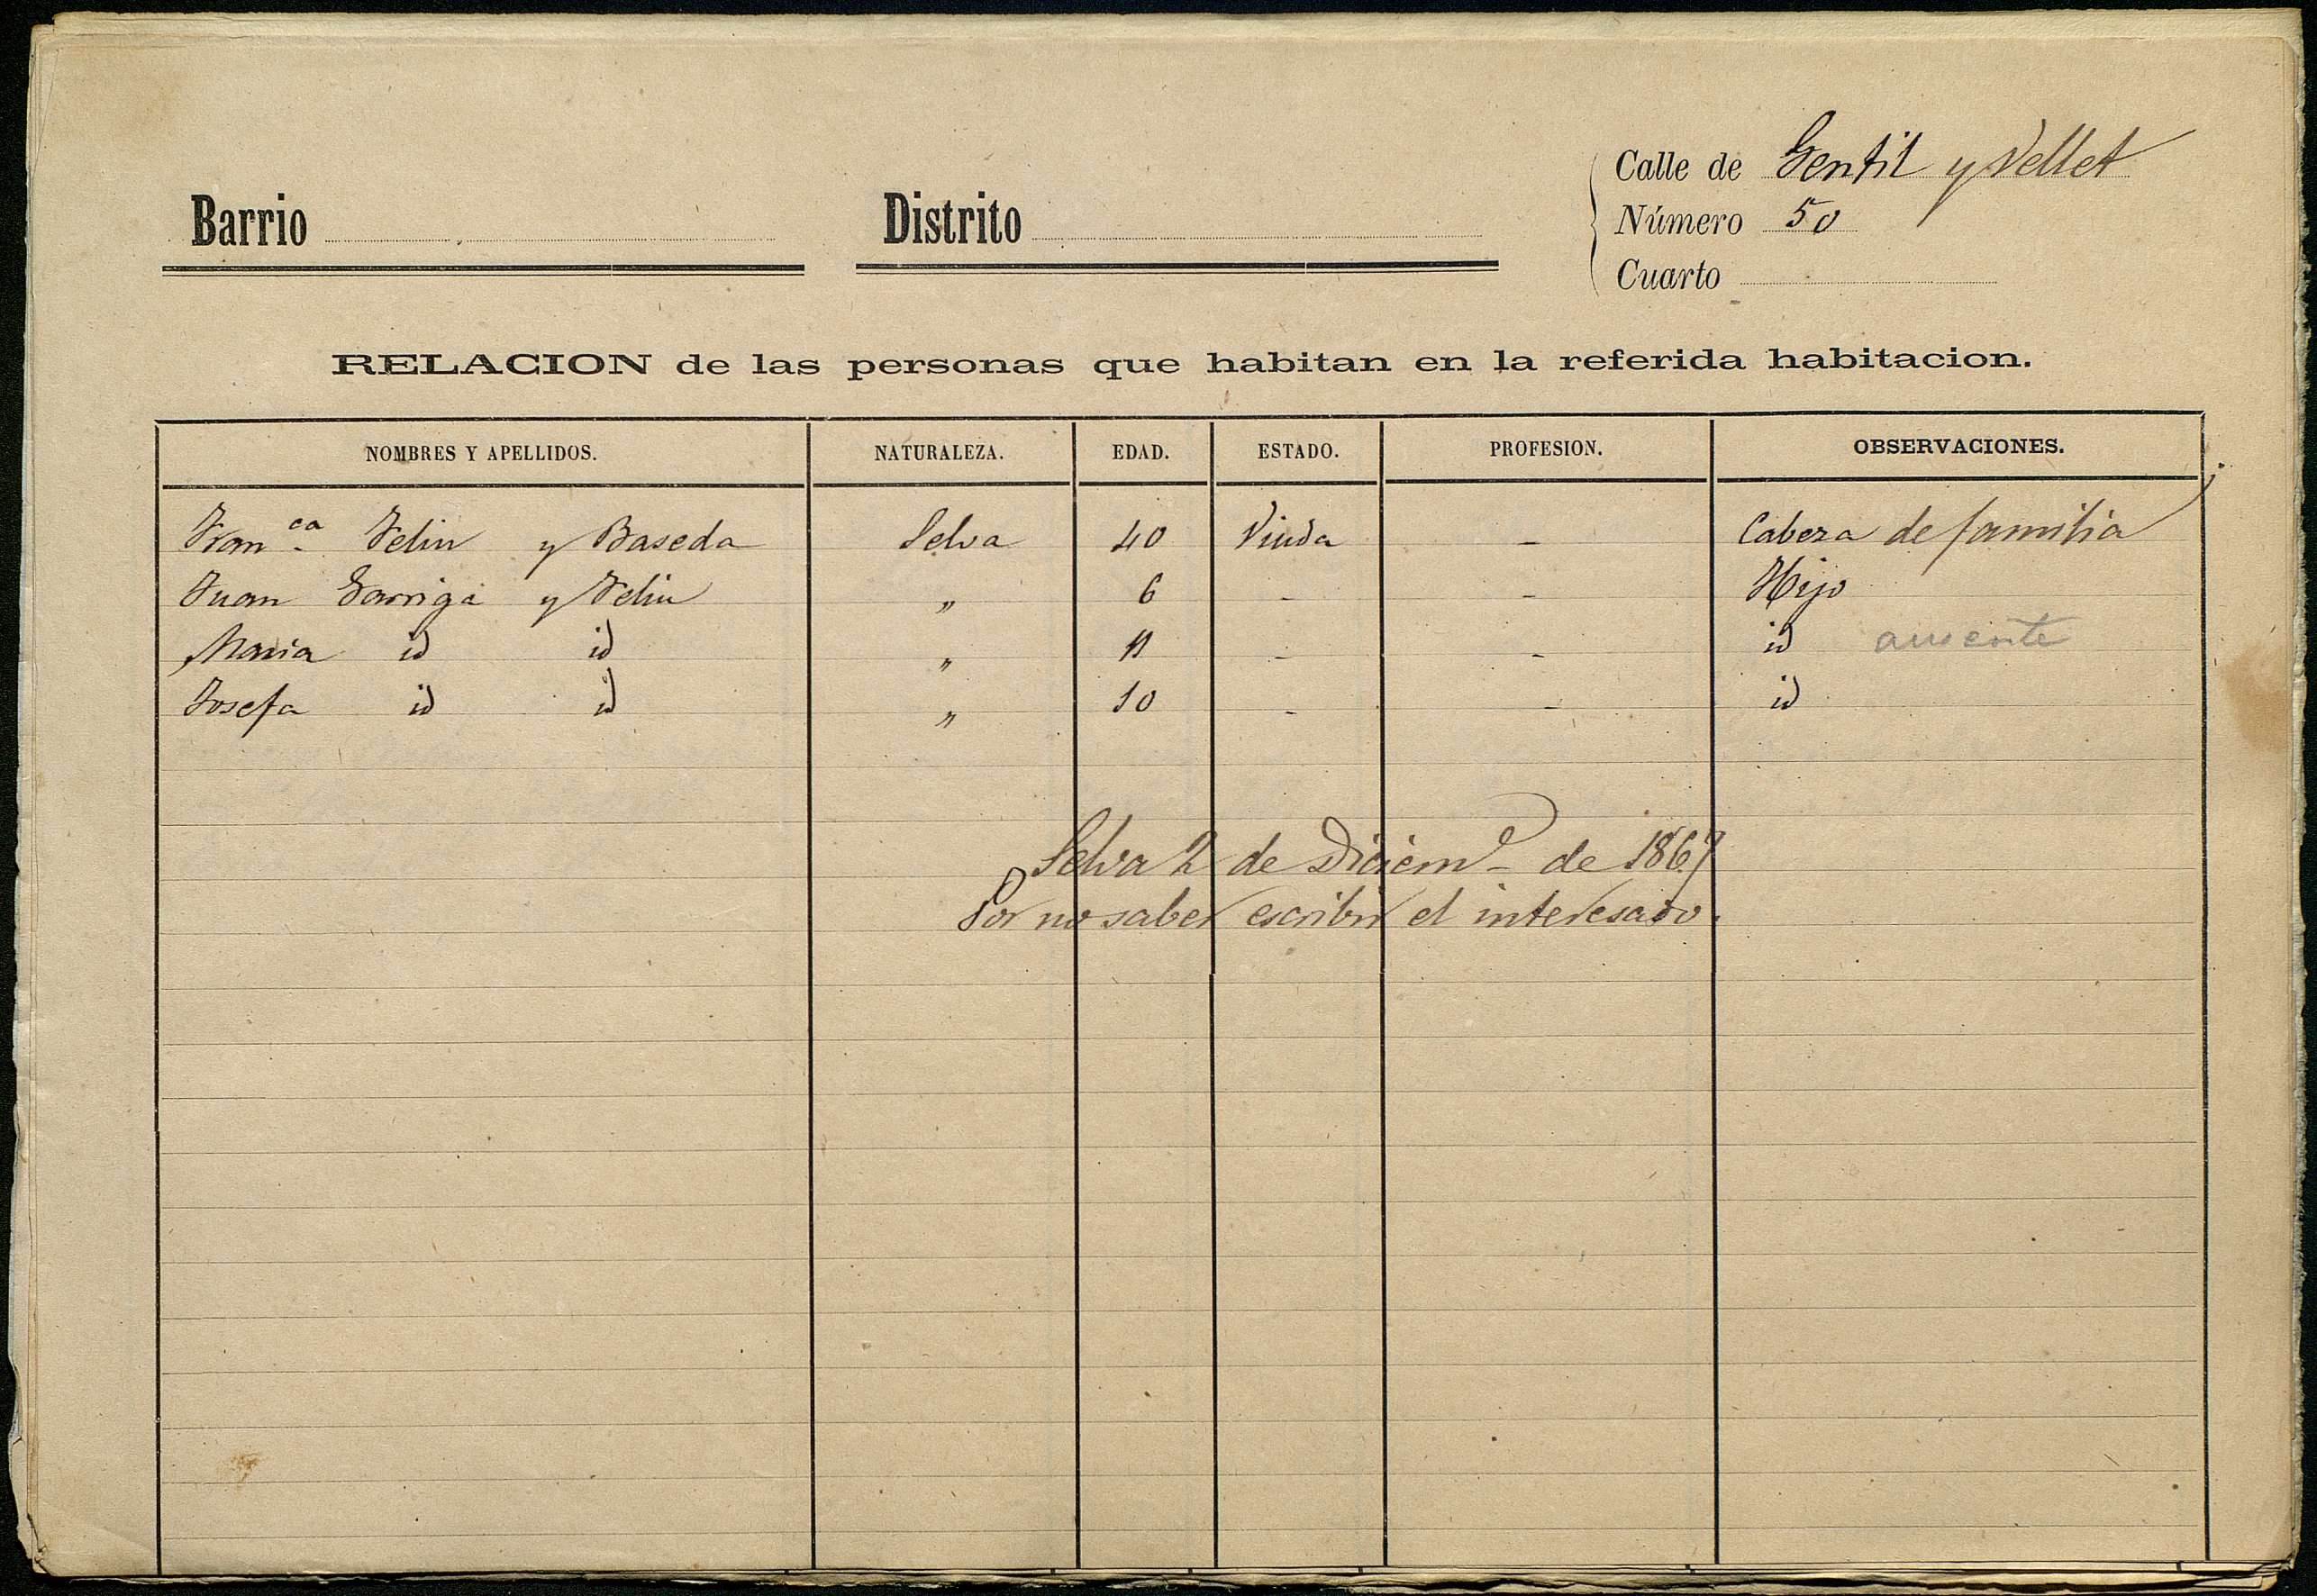 Calle de Gentil y Vellet
Barrio Distrito Número 50
Cuarto
RELACION de las personas que habitan en la referida habitacion.
NOMBRES Y APELLIDOS. NATURALEZA. EDAD. ESTADO. PROFESION. OBSERVACIONES.
Fran.ca Feliu y Baseda Selva 40 Viuda - Cabeza de familia
Juan Garriga y Feliu " 6 - - Hijo
Maria id id " 11 - - id ausente
Josefa id id " 10 - - id
Selva 2 de Diciem.e de 1867
Por no saber escribir el interesado.